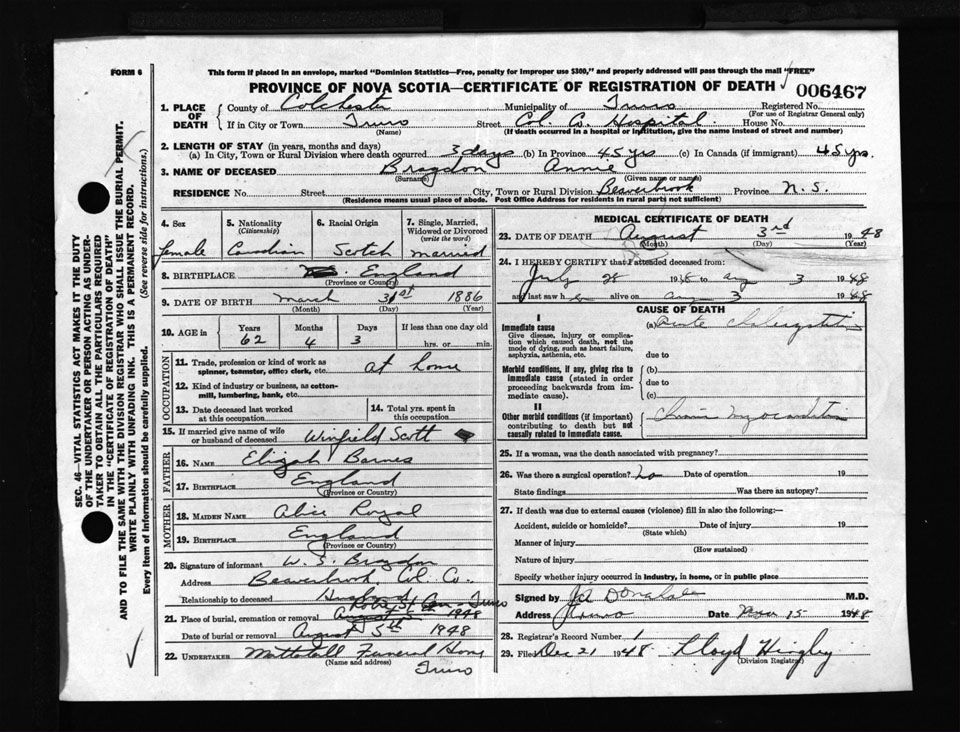 FORM 6
This form if placed in an envelope, marked "Dominion Statistics—Free, penalty for improper use $300," and properly addressed will pass through the mail "FREE"
PROVINCE OF NOVA SCOTIA—CERTIFICATE OF REGISTRATION OF DEATH 006467
1. PLACE OF DEATH
County of Colchester Municipality of Truro Registered No.
(For use of Registrar General only)
If in City or Town Truro Street Col. Co. Hospital. House No.
(Name) (If death occurred in a hospital or institution, give the name instead of street and number)
2. LENGTH OF STAY (in years, months and days)
(a) In City, Town or Rural Division where death occurred 3 days (b) In Province 45 yrs (c) In Canada (if immigrant) 45 yrs.
3. NAME OF DECEASED Brydon Annie
(Surname) (Given name or names)
RESIDENCE No. Street City, Town or Rural Division Beaverbrook Province N.S.
(Residence means usual place of abode. Post Office Address for residents in rural parts not sufficient)
4. Sex
female
5. Nationality
(Citizenship)
Canadian
6. Racial Origin
Scotch
7. Single, Married, Widowed or Divorced
(write the word)
married
8. BIRTHPLACE England
(Province or Country)
9. DATE OF BIRTH March 31st 1886
(Month) (Day) (Year)
10. AGE in Years Months Days If less than one day old
62 4 3 hrs. or min.
OCCUPATION
11. Trade, profession or kind of work as spinner, teamster, office clerk, etc. at home
12. Kind of industry or business, as cotton-mill, lumbering, bank, etc.
13. Date deceased last worked at this occupation
14. Total yrs. spent in this occupation
15. If married give name of wife or husband of deceased Winfield Scott
FATHER
16. NAME Elijah Barnes
17. BIRTHPLACE England
(Province or Country)
MOTHER
18. MAIDEN NAME Alice Royal
19. BIRTHPLACE England
(Province or Country)
20. Signature of informant W. S. Brydon
Address Beaverbrook, Col. Co.
Relationship to deceased Husband
Robie St Cem. Truro
21. Place of burial, cremation or removal August 5 1948
Date of burial or removal August 5th 1948
22. UNDERTAKER Mattatall Funeral Home
(Name and address)
Truro
MEDICAL CERTIFICATE OF DEATH
23. DATE OF DEATH August 3rd 1948
(Month) (Day) (Year)
24. I HEREBY CERTIFY that I attended deceased from:
July 28 1948 to Aug 3 1948
and last saw her alive on Aug 3 1948
CAUSE OF DEATH
I
Immediate cause
Give disease, injury or complication which caused death, not the mode of dying, such as heart failure, asphyxia, asthenia, etc.
(a) Acute Cholecystitis
due to
Morbid conditions, if any, giving rise to immediate cause (stated in order proceeding backwards from immediate cause).
(b)
due to
(c)
II
Other morbid conditions (if important) contributing to death but not causally related to immediate cause.
Chronic Myocarditis
25. If a woman, was the death associated with pregnancy?
26. Was there a surgical operation? No Date of operation 19
State findings Was there an autopsy?
27. If death was due to external causes (violence) fill in also the following:—
Accident, suicide or homicide? Date of injury 19
(State which)
Manner of injury
(How sustained)
Nature of injury
Specify whether injury occurred in industry, in home, or in public place
Signed by M.D.
Address Truro Date 15 1948
28. Registrar's Record Number 1
29. Filed Dec 21 1948 Lloyd Hingley
(Division Registrar)
SEC. 46—VITAL STATISTICS ACT MAKES IT THE DUTY
OF THE UNDERTAKER OR PERSON ACTING AS UNDER-
TAKER TO OBTAIN ALL THE PARTICULARS REQUIRED
IN THE "CERTIFICATE OF REGISTRATION OF DEATH" AND
TO FILE THE SAME WITH THE DIVISION REGISTRAR WHO SHALL ISSUE THE BURIAL PERMIT.
WRITE PLAINLY WITH UNFADING INK. THIS IS A PERMANENT RECORD.
Every item of information should be carefully supplied. (See reverse side for instructions.)